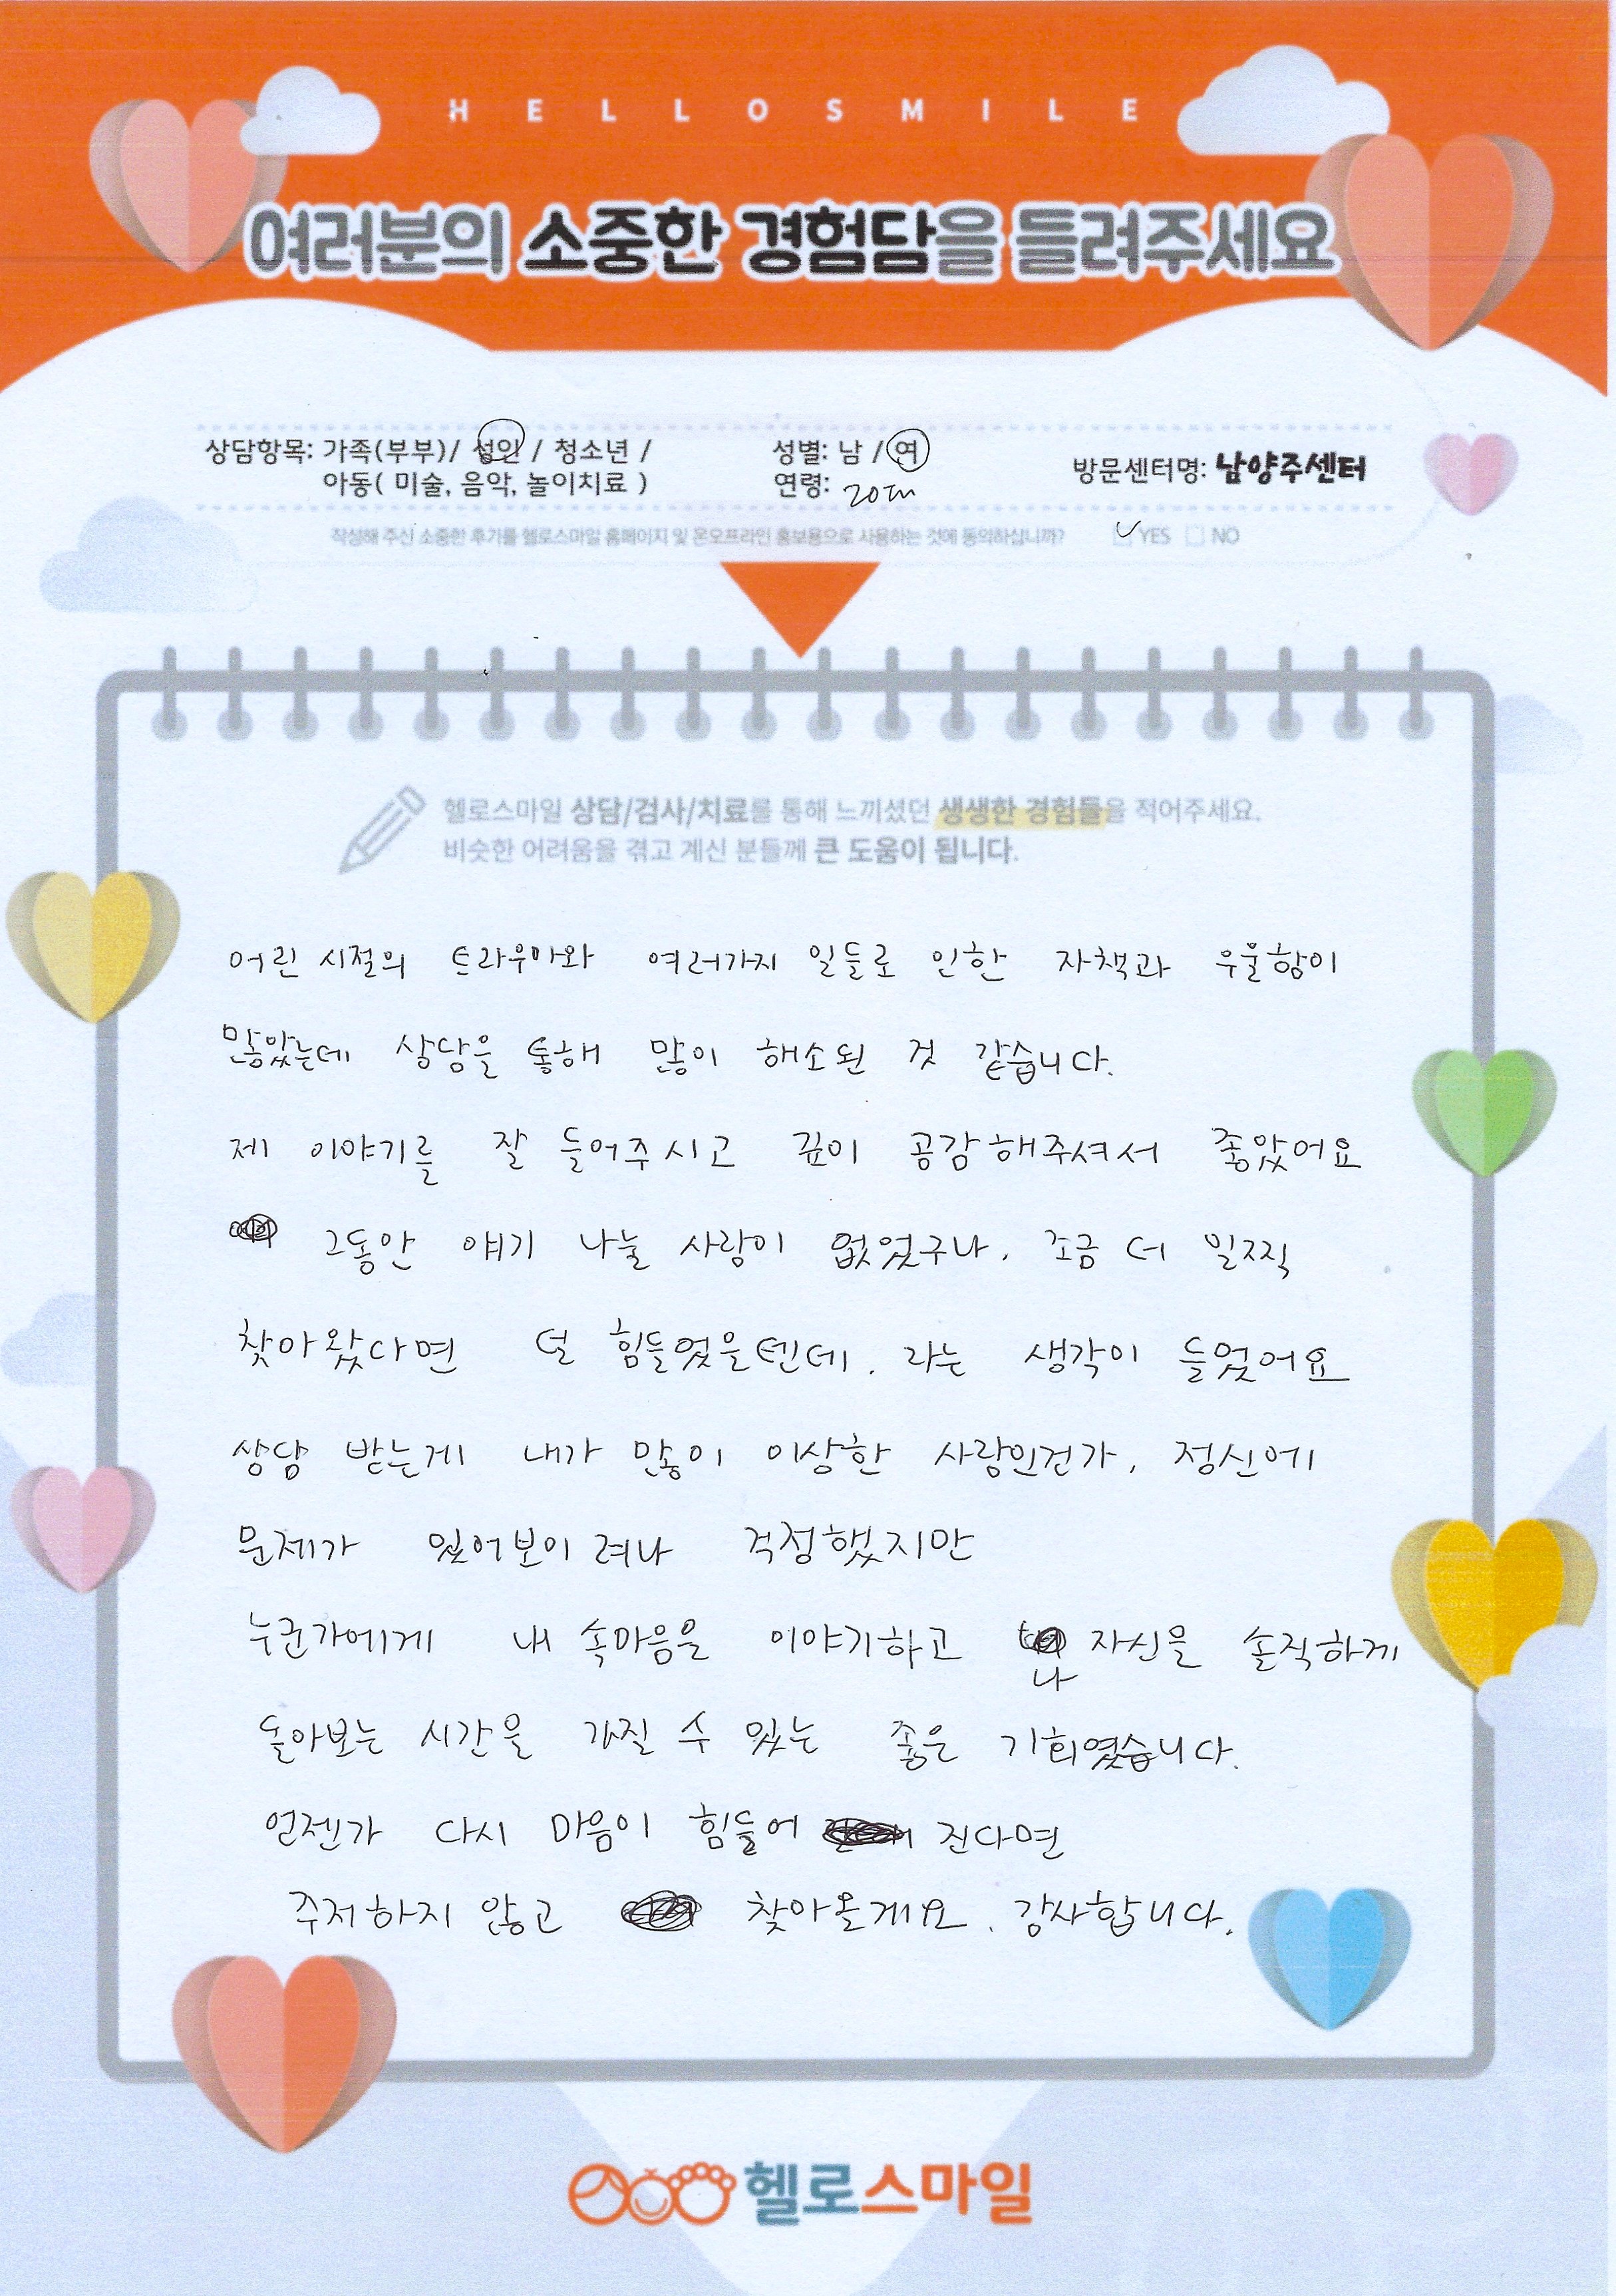 HELLOSMILE
여러분의 소중한 경험담을 들려주세요
상담항목: 가족(부부)/ 성인 / 청소년 /
아동( 미술, 음악, 놀이치료 )
성별: 남 / 여
연령: 20대
방문센터명: 남양주센터
작성해 주신 소중한 후기를 헬로스마일 홈페이지 및 온오프라인 홍보용으로 사용하는 것에 동의하십니까? YES NO
헬로스마일 상담/검사/치료를 통해 느끼셨던 생생한 경험들을 적어주세요.
비슷한 어려움을 겪고 계신 분들께 큰 도움이 됩니다.
어린 시절의 트라우마와 여러가지 일들로 인한 자책과 우울함이
많았는데 상담을 통해 많이 해소된 것 같습니다.
제 이야기를 잘 들어주시고 깊이 공감해주셔서 좋았어요
그동안 얘기 나눌 사람이 없었구나. 조금 더 일찍
찾아왔다면 덜 힘들었을텐데. 라는 생각이 들었어요
상담 받는게 내가 많이 이상한 사람인건가, 정신에
문제가 있어보이려나 걱정했지만
누군가에게 내 속마음을 이야기하고 나 자신을 솔직하게
돌아보는 시간을 가질 수 있는 좋은 기회였습니다.
언젠가 다시 마음이 힘들어 진다면
주저하지 않고 찾아올게요. 감사합니다.
헬로스마일